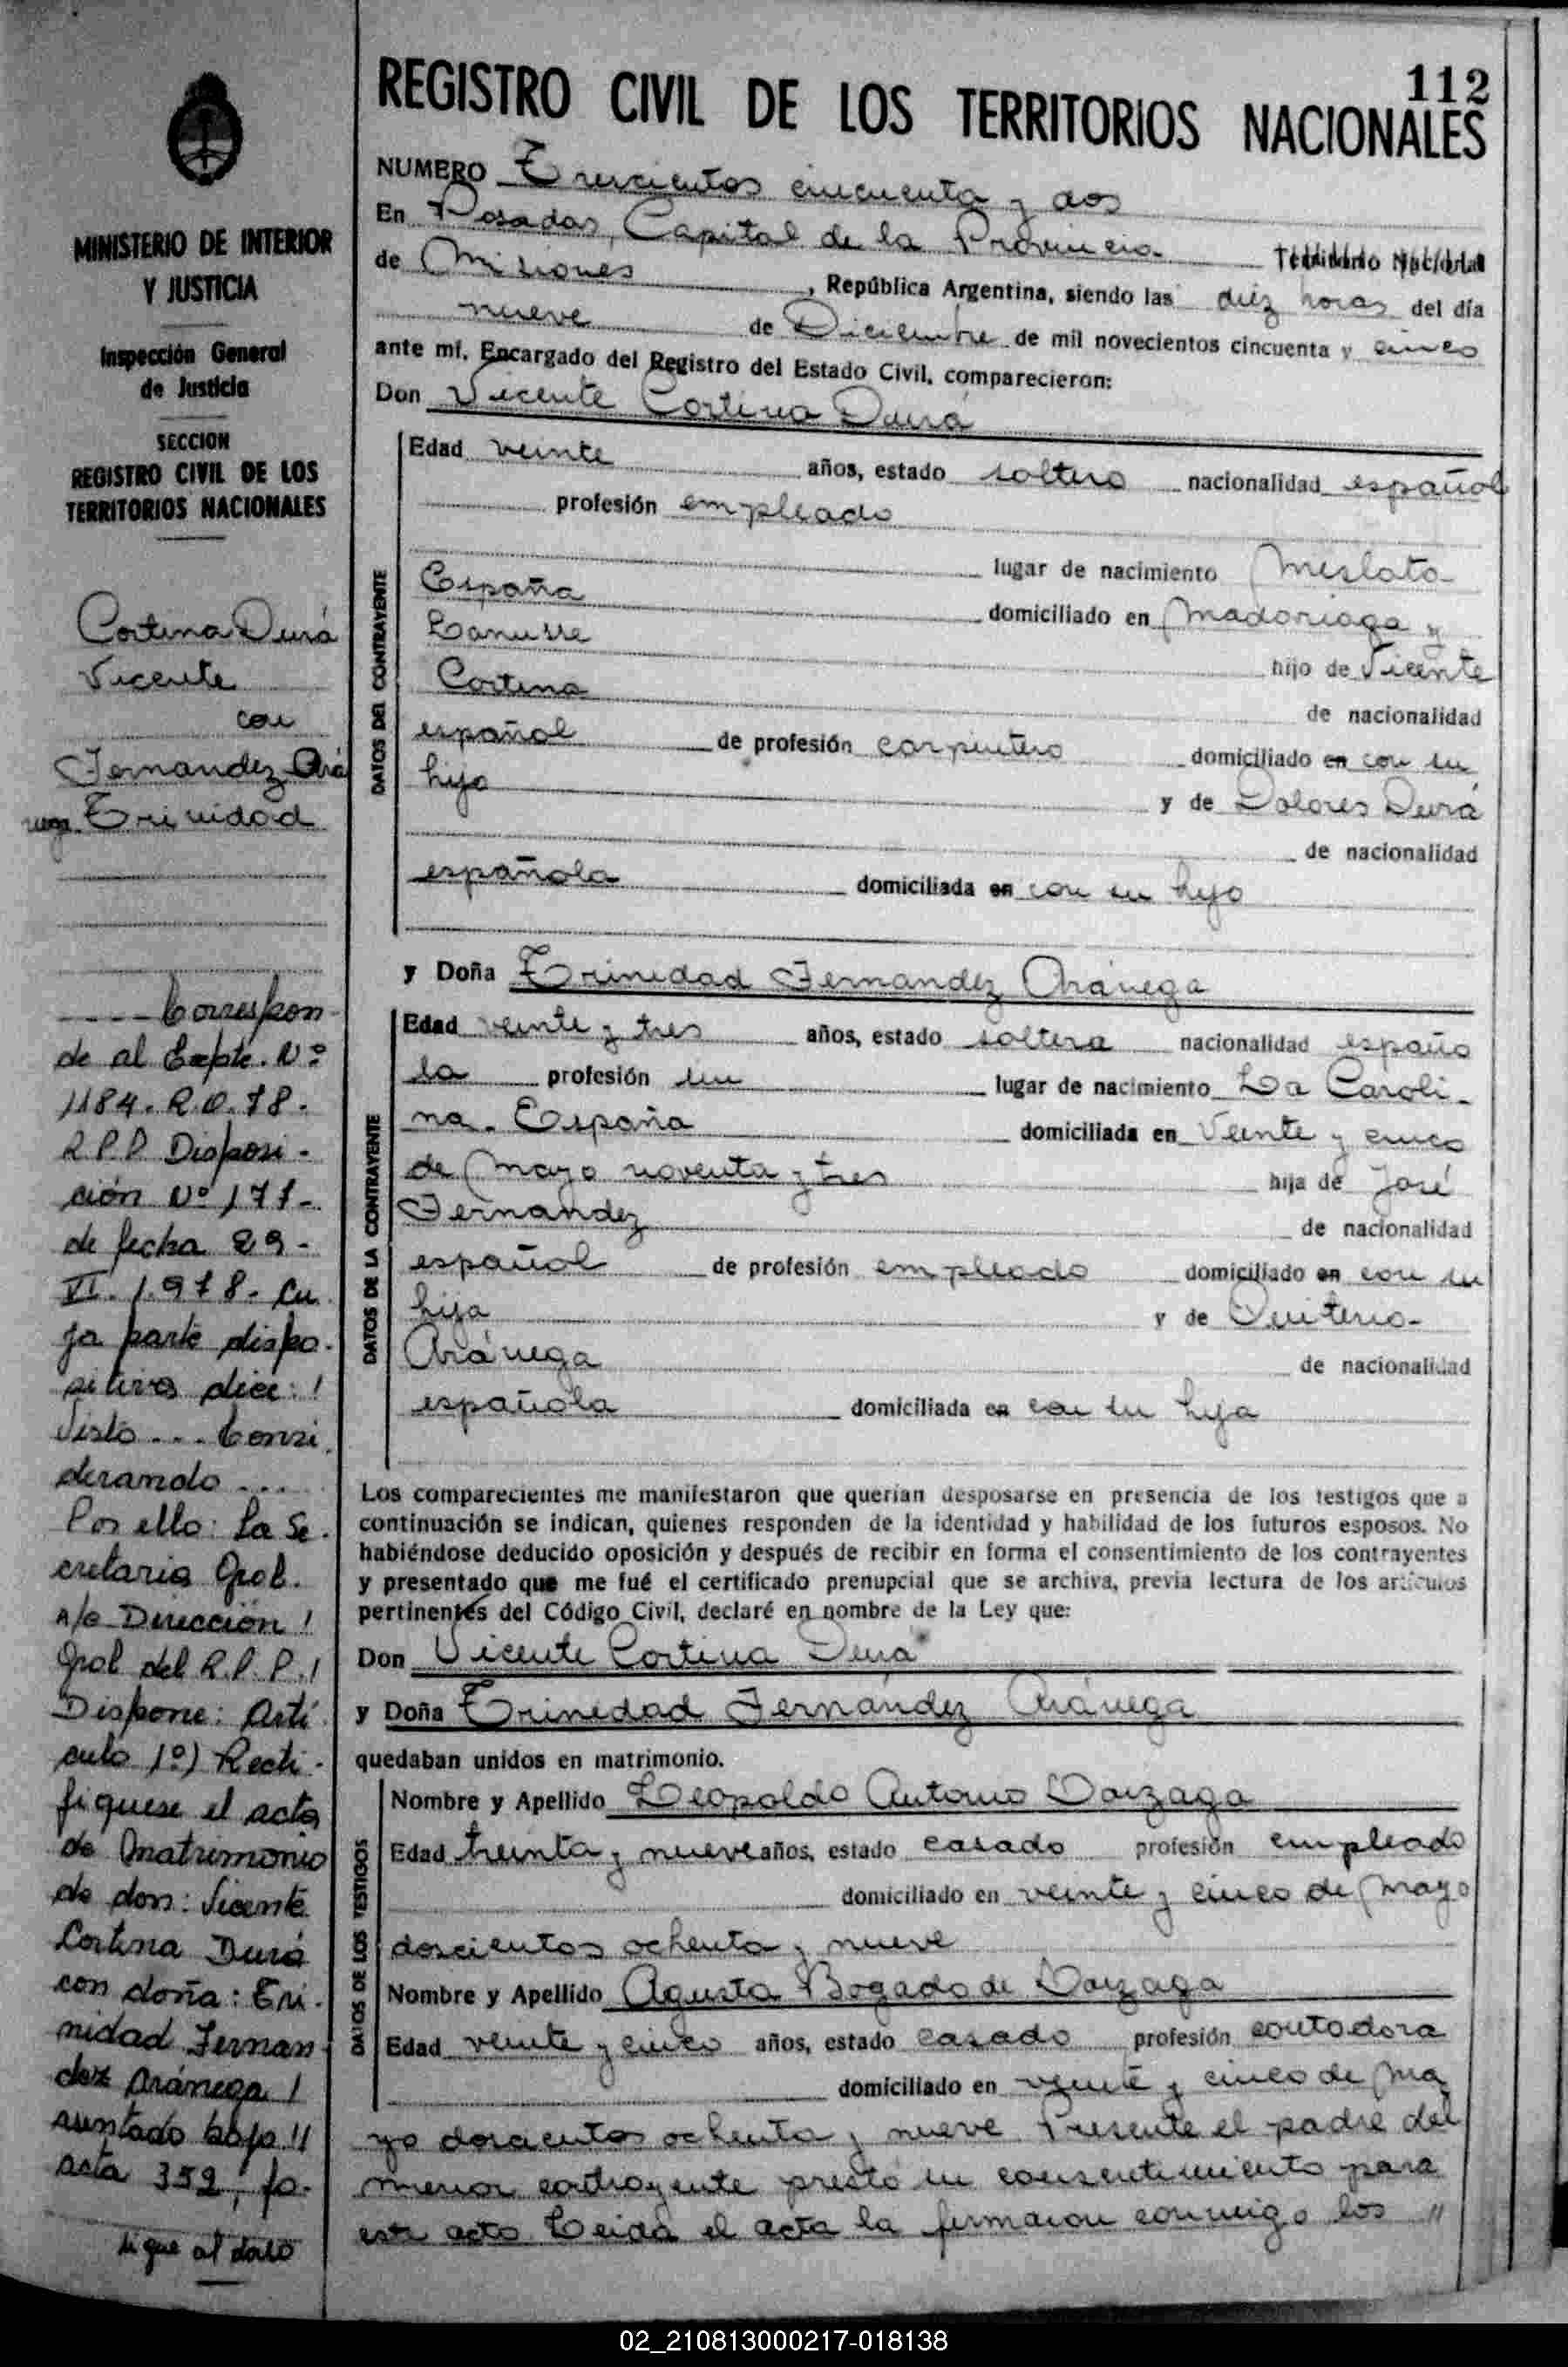 112
REGISTRO CIVIL DE LOS TERRITORIOS NACIONALES
NUMERO Trescientos cincuenta y dos
En Posadas, Capital de la Provincia Territorio Nacional
de Misiones, República Argentina, siendo las diez horas del día
nueve de Diciembre de mil novecientos cincuenta y cinco
ante mí, Encargado del Registro del Estado Civil, comparecieron:
Don Vicente Cortina Durá
DATOS DEL CONTRAYENTE
Edad veinte años, estado soltero nacionalidad español
profesión empleado
lugar de nacimiento Mislata
España domiciliado en Madariaga y
Lanusse hijo de Vicente
Cortina de nacionalidad
español de profesión carpintero domiciliado en con su
hijo y de Dolores Durá
de nacionalidad
española domiciliada en con su hijo
y Doña Trinidad Fernandez Aránega
DATOS DE LA CONTRAYENTE
Edad veinte y tres años, estado soltera nacionalidad españo
la profesión sin lugar de nacimiento La Caroli-
na. España domiciliada en Veinte y cinco
de Mayo noventa y tres hija de José
Fernandez de nacionalidad
español de profesión empleado domiciliado en con su
hija y de Quiteria
Aránega de nacionalidad
española domiciliada en con su hija
Los comparecientes me manifestaron que querían desposarse en presencia de los testigos que a
continuación se indican, quienes responden de la identidad y habilidad de los futuros esposos. No
habiéndose deducido oposición y después de recibir en forma el consentimiento de los contrayentes
y presentado que me fué el certificado prenupcial que se archiva, previa lectura de los artículos
pertinentes del Código Civil, declaré en nombre de la Ley que:
Don Vicente Cortina Durá
y Doña Trinidad Fernández Aránega
quedaban unidos en matrimonio.
DATOS DE LOS TESTIGOS
Nombre y Apellido Leopoldo Antonio
Edad treinta y nueve años, estado casado profesión empleado
domiciliado en veinte y cinco de Mayo
doscientos ochenta y nueve
Nombre y Apellido Agusta Bogado de
Edad veinte y cinco años, estado casado profesión contadora
domiciliado en veinte y cinco de Ma
yo doscientos ochenta y nueve Presente el padre del
menor contrayente prestó su consentimiento para
este acto Leida el acta la firmaron conmigo los "
MINISTERIO DE INTERIOR
Y JUSTICIA
Inspección General
de Justicia
SECCION
REGISTRO CIVIL DE LOS
TERRITORIOS NACIONALES
Cortina Durá
Vicente
con
Fernandez Ará
nega Trinidad
Correspon-
de al Expte. Nº
1184. R.O.78.
R.P.P Disposi-
ción Nº 171-
de fecha 29-
VI. 1.978. Cu
ya parte dispo-
sitiva dice: !
Visto... Consi
derando...
Por ello: La Se-
cretaria Gral.
A/C Dirección !
Gral del R.P.P. !
Dispone: Artí
culo 1º) Recti-
fíquese el acta
de Matrimonio
de don: Vicente
Cortina Durá
con doña: Tri-
nidad Fernan-
dez Aránega !
asentado bajo !!
acta 352, fo-
sigue al dorso
02_210813000217-018138